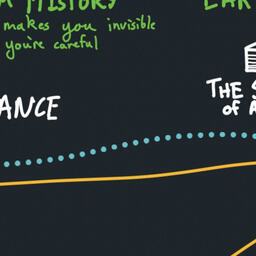 HISTORY
makes you invisible
you're careful
ANCE
THE S
of A